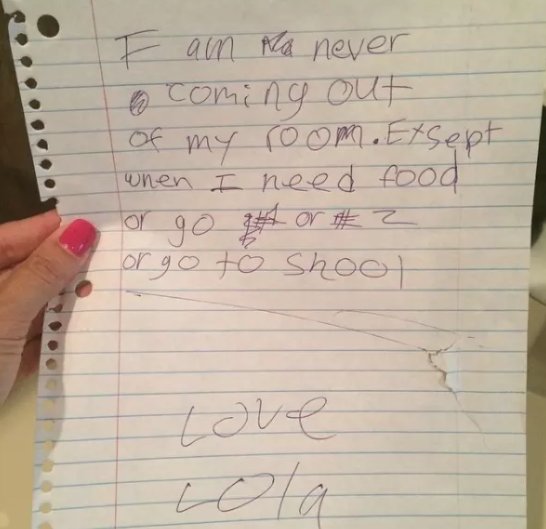 I am never
coming out
of my room. Exsept
when I need food
or go #1 or # 2
or go to Shool
Love
Lola